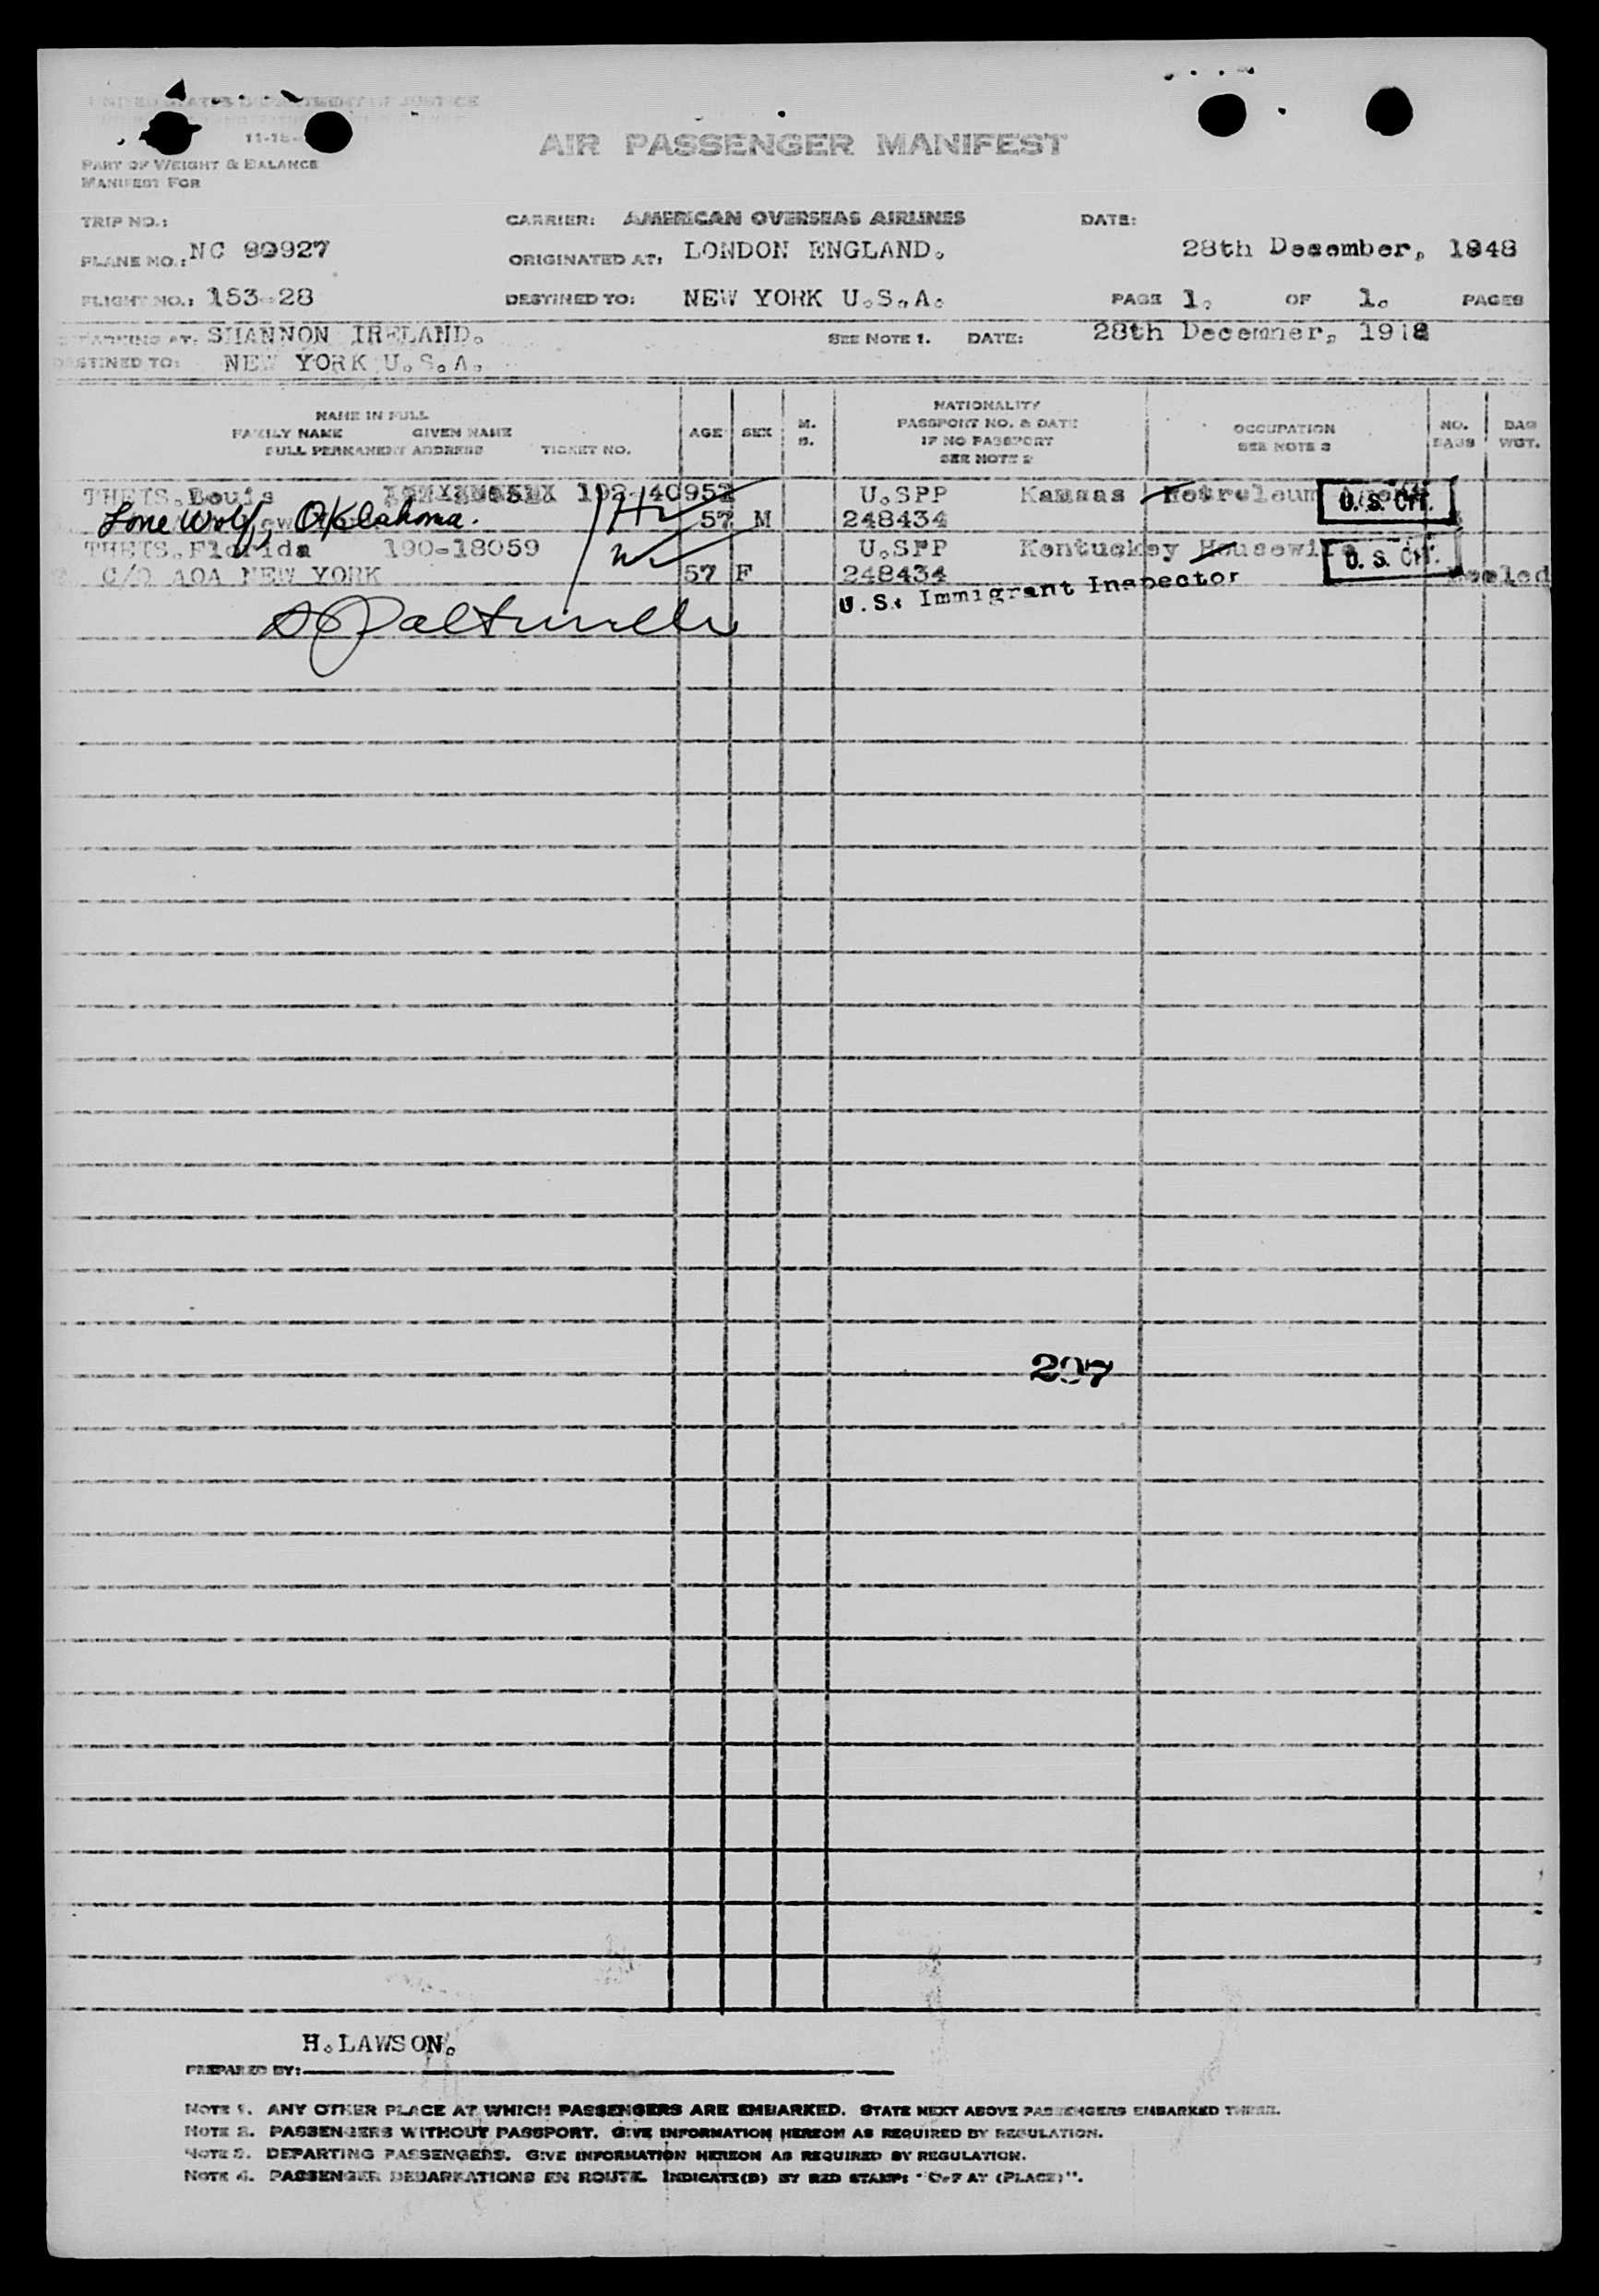 UNITED STATES DEPARTMENT OF JUSTICE
11-18-
PART OF WEIGHT & BALANCE
MANIFEST FOR
AIR PASSENGER MANIFEST
TRIP NO.: CARRIER: AMERICAN OVERSEAS AIRLINES DATE:
PLANE NO.: NC 90927 ORIGINATED AT: LONDON ENGLAND. 28th December, 1948
FLIGHT NO.: 153-28 DESTINED TO: NEW YORK U.S.A. PAGE 1. OF 1. PAGES
AT: SHANNON IRELAND. SEE NOTE 1. DATE: 28th Decemner, 1948
DESTINED TO: NEW YORK U.S.A.
NAME IN FULL
FAMILY NAME GIVEN NAME
FULL PERMANENT ADDRESS TICKET NO.
AGE SEX M. S.
NATIONALITY
PASSPORT NO. & DATE
IF NO PASSPORT
SEE NOTE 2
OCCUPATION
SEE NOTE 3
NO. BAGS
BAG WGT.
THEIS. Louis 192-40952 U.SPP Kansas Petroleum U.S. CIT.
Lone Wolf, Oklahoma. H 57 M 248434
THEIS. Florida 190-18059 W U.SPP Kentuckey Housewife U.S. CIT.
C/O AOA NEW YORK 57 F 248434
U.S. Immigrant Inspector
207
H.LAWSON.
PREPARED BY:
NOTE 1. ANY OTHER PLACE AT WHICH PASSENGERS ARE EMBARKED. STATE NEXT ABOVE PASSENGERS EMBARKED THERE.
NOTE 2. PASSENGERS WITHOUT PASSPORT. GIVE INFORMATION HEREON AS REQUIRED BY REGULATION.
NOTE 3. DEPARTING PASSENGERS. GIVE INFORMATION HEREON AS REQUIRED BY REGULATION.
NOTE 4. PASSENGER DEBARKATIONS EN ROUTE. INDICATE(D) BY RED STAMP: "OFF AT (PLACE)".